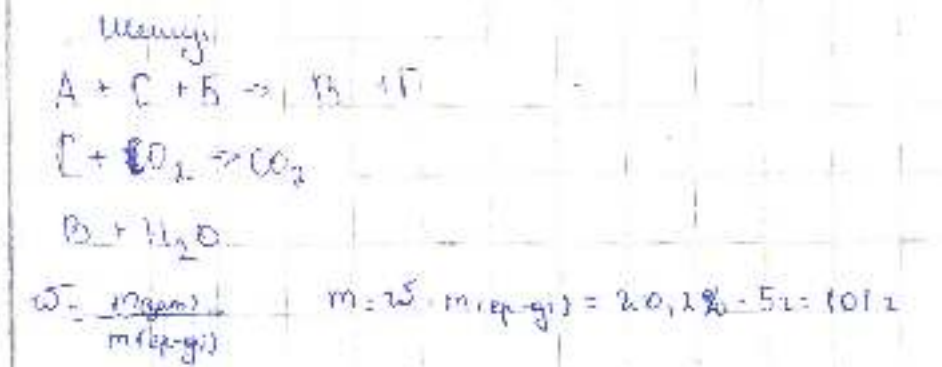 Шешуі
A + C + Б → В + Г
C + O₂ → CO₂
В + H₂O
ω = m(зат) / m(ер-ді) m = ω · m(ер-ді) = 20,2% · 5г = 101г